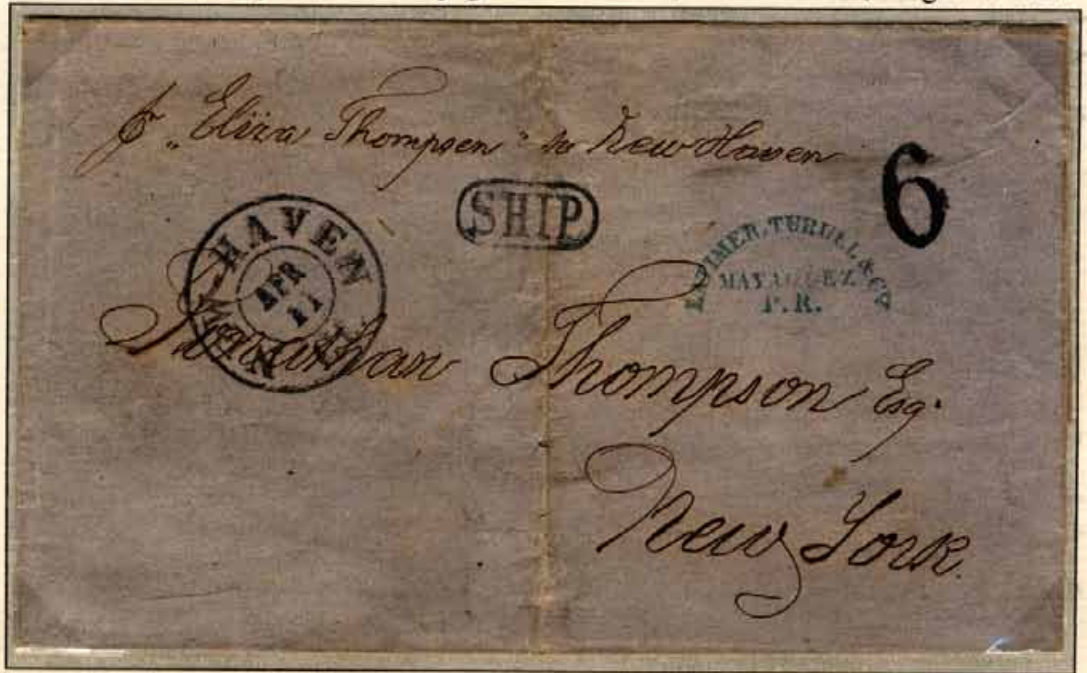 pr "Eliza Thompsen" to New Haven
6
SHIP
NEW-HAVEN
APR
11
LATIMER, TURULL & CO
MAYAGUEZ
P.R.
Jonathan Thompson Esq.
New York.